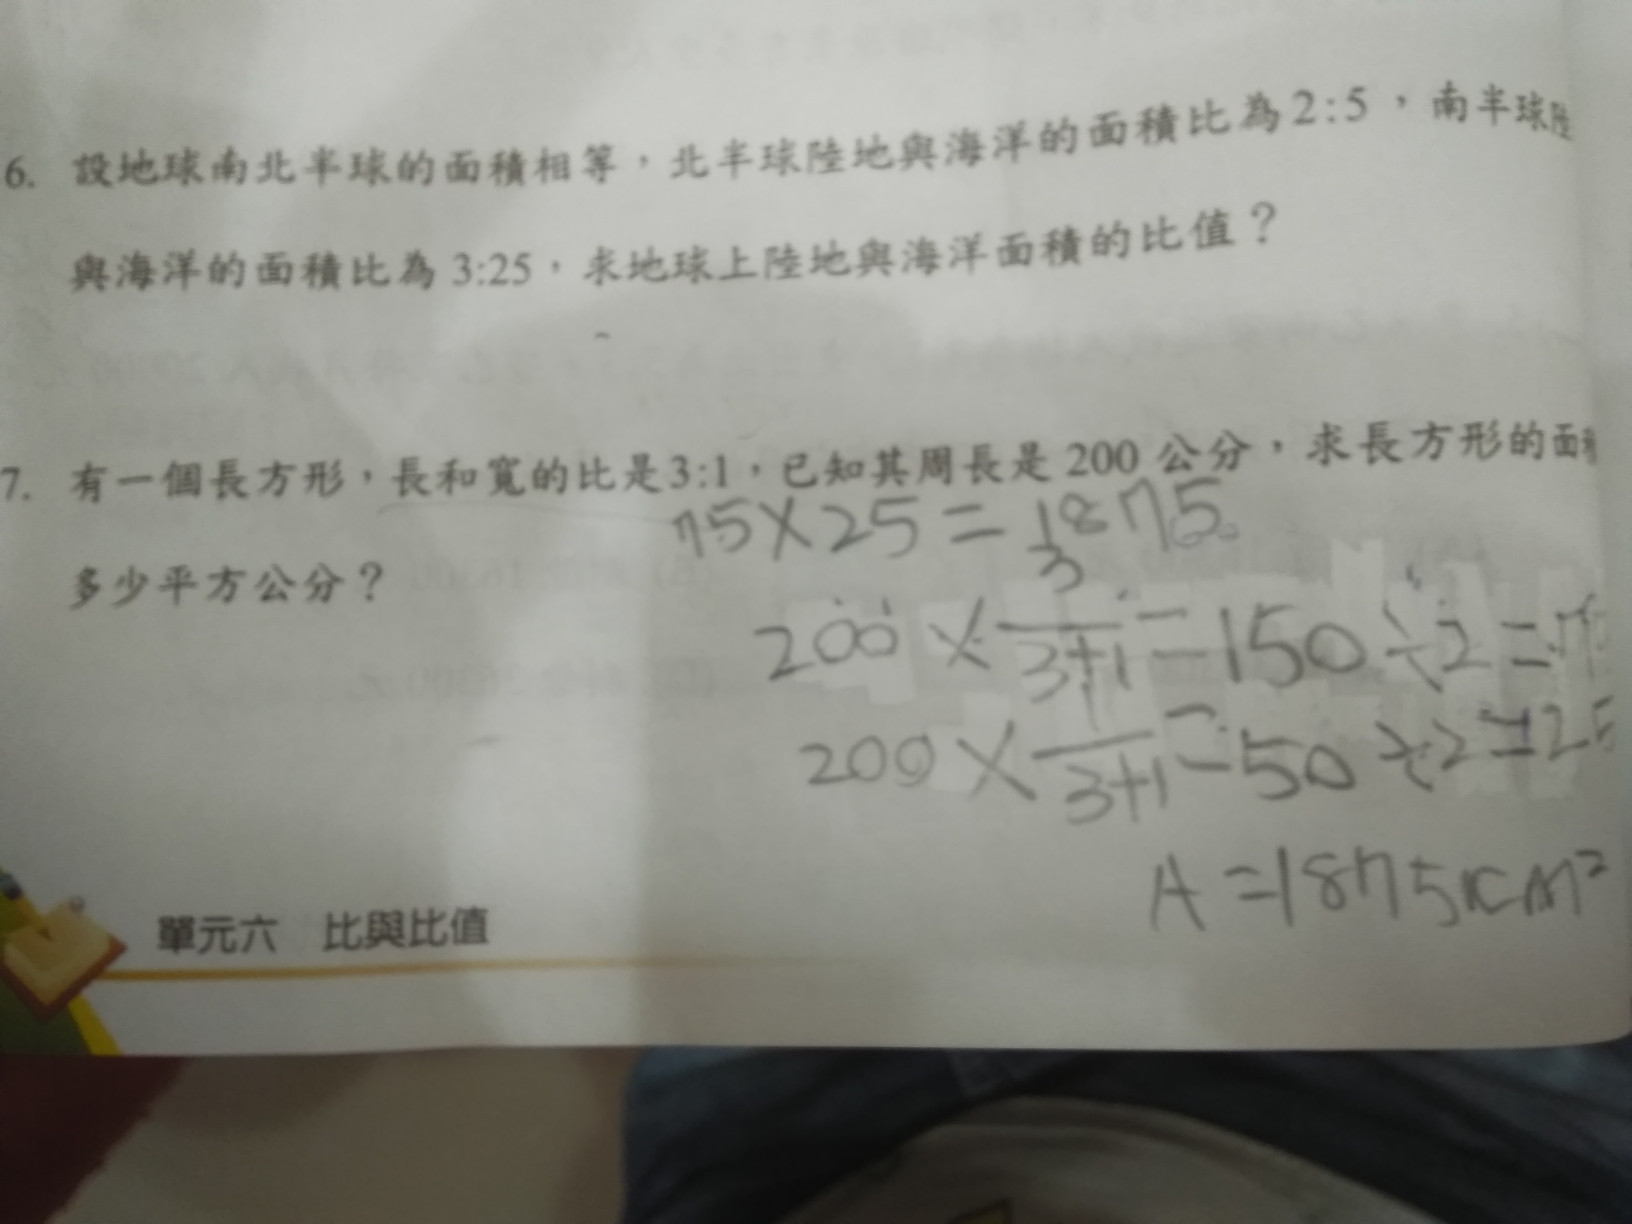 6. 設地球南北半球的面積相等，北半球陸地與海洋的面積比為2:5，南半球陸
與海洋的面積比為 3:25，求地球上陸地與海洋面積的比值？
7. 有一個長方形，長和寬的比是3:1，已知其周長是 200 公分，求長方形的面積
75×25=1875
多少平方公分？
200×3/(3+1)=150÷2=7
200×1/(3+1)=50÷2=25
A=1875cm²
單元六 比與比值